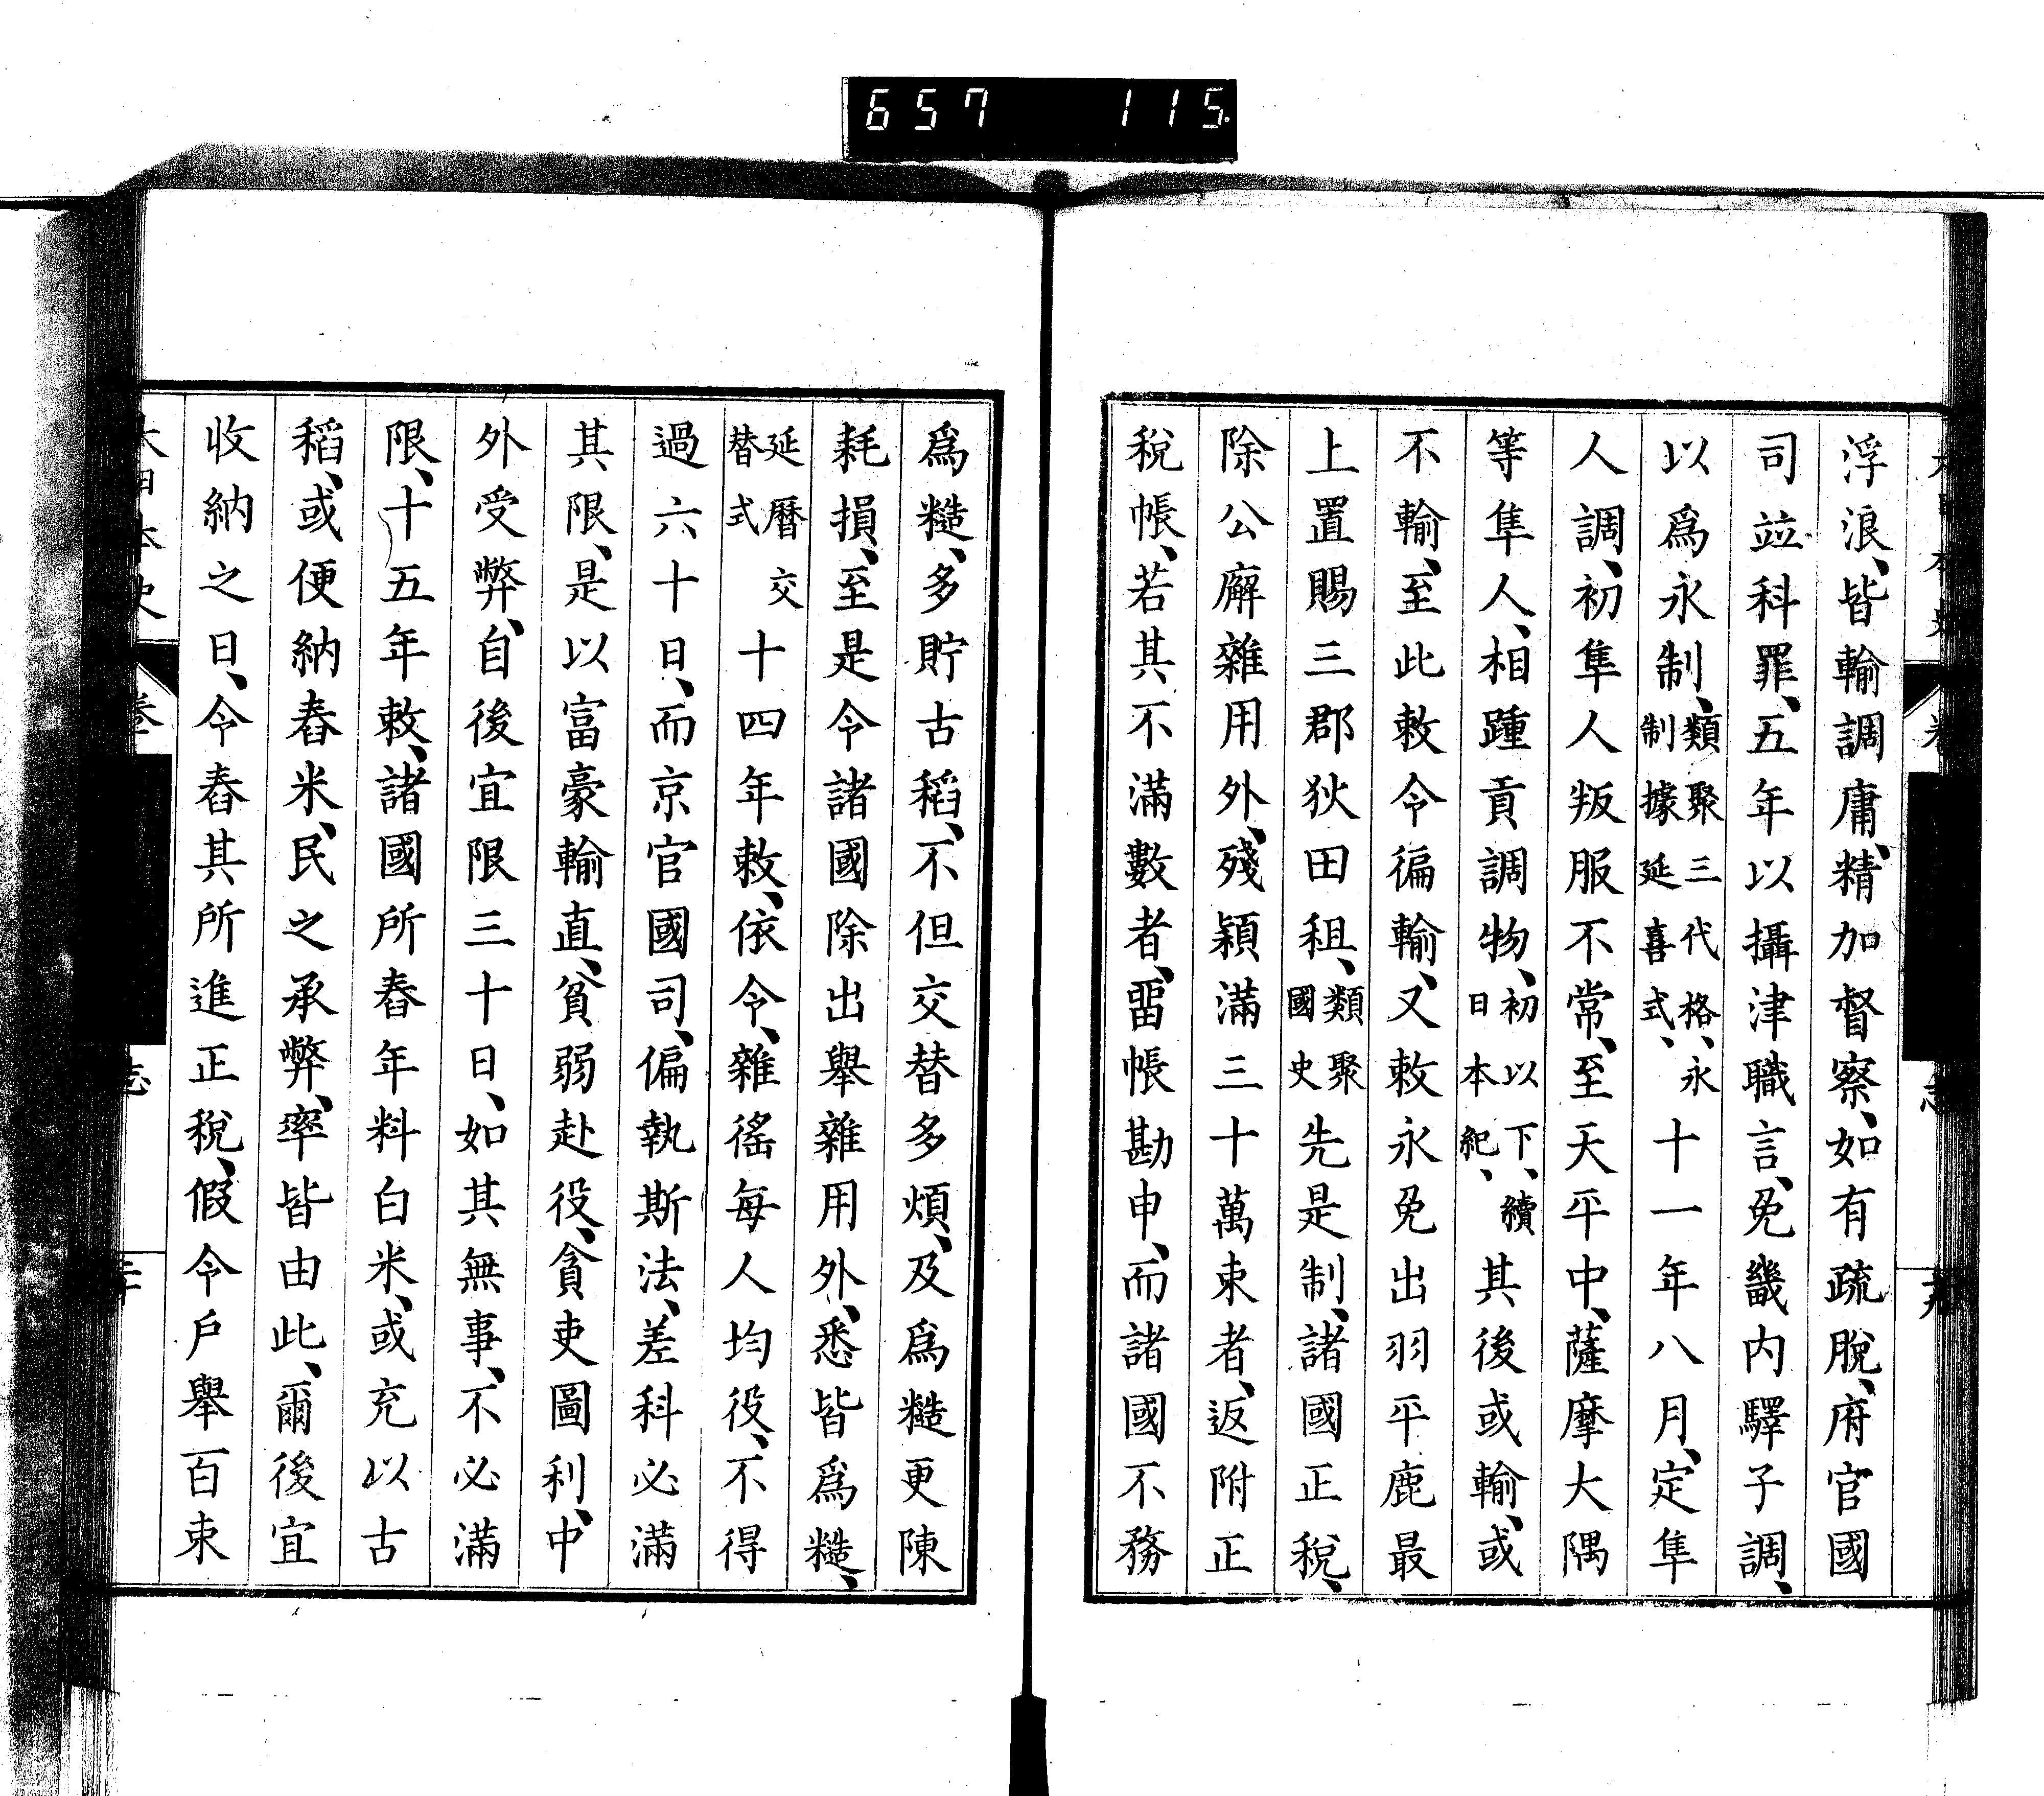 657 115
浮浪、皆輸調庸、精加督察、如有疏脫、府官國
司竝科罪、五年以攝津職言、免畿内驛子調、
以爲永制、類聚三代格、永制據延喜式、十一年八月、定隼
人調、初隼人叛服不常、至天平中、薩摩大隅
等隼人、相踵貢調物、初以下、續日本紀、其後或輸、或
不輸、至此敕令徧輸、又敕永免出羽平鹿最
上置賜三郡狄田租、類聚國史先是制、諸國正稅、
除公廨雜用外、殘穎滿三十萬束者、返附正
稅帳、若其不滿數者、畱帳勘申、而諸國不務
爲糙、多貯古稻、不但交替多煩、及爲糙更陳
耗損、至是令諸國除出舉雜用外、悉皆爲糙、
延曆交替式十四年敕、依令、雜徭每人均役、不得
過六十日、而京官國司、偏執斯法、差科必滿
其限、是以富豪輸直、貧弱赴役、貪吏圖利、中
外受弊、自後宜限三十日、如其無事、不必滿
限、十五年敕、諸國所舂年料白米、或充以古
稻、或便納舂米、民之承弊、率皆由此、爾後宜
收納之日、令舂其所進正稅、假令戶舉百束